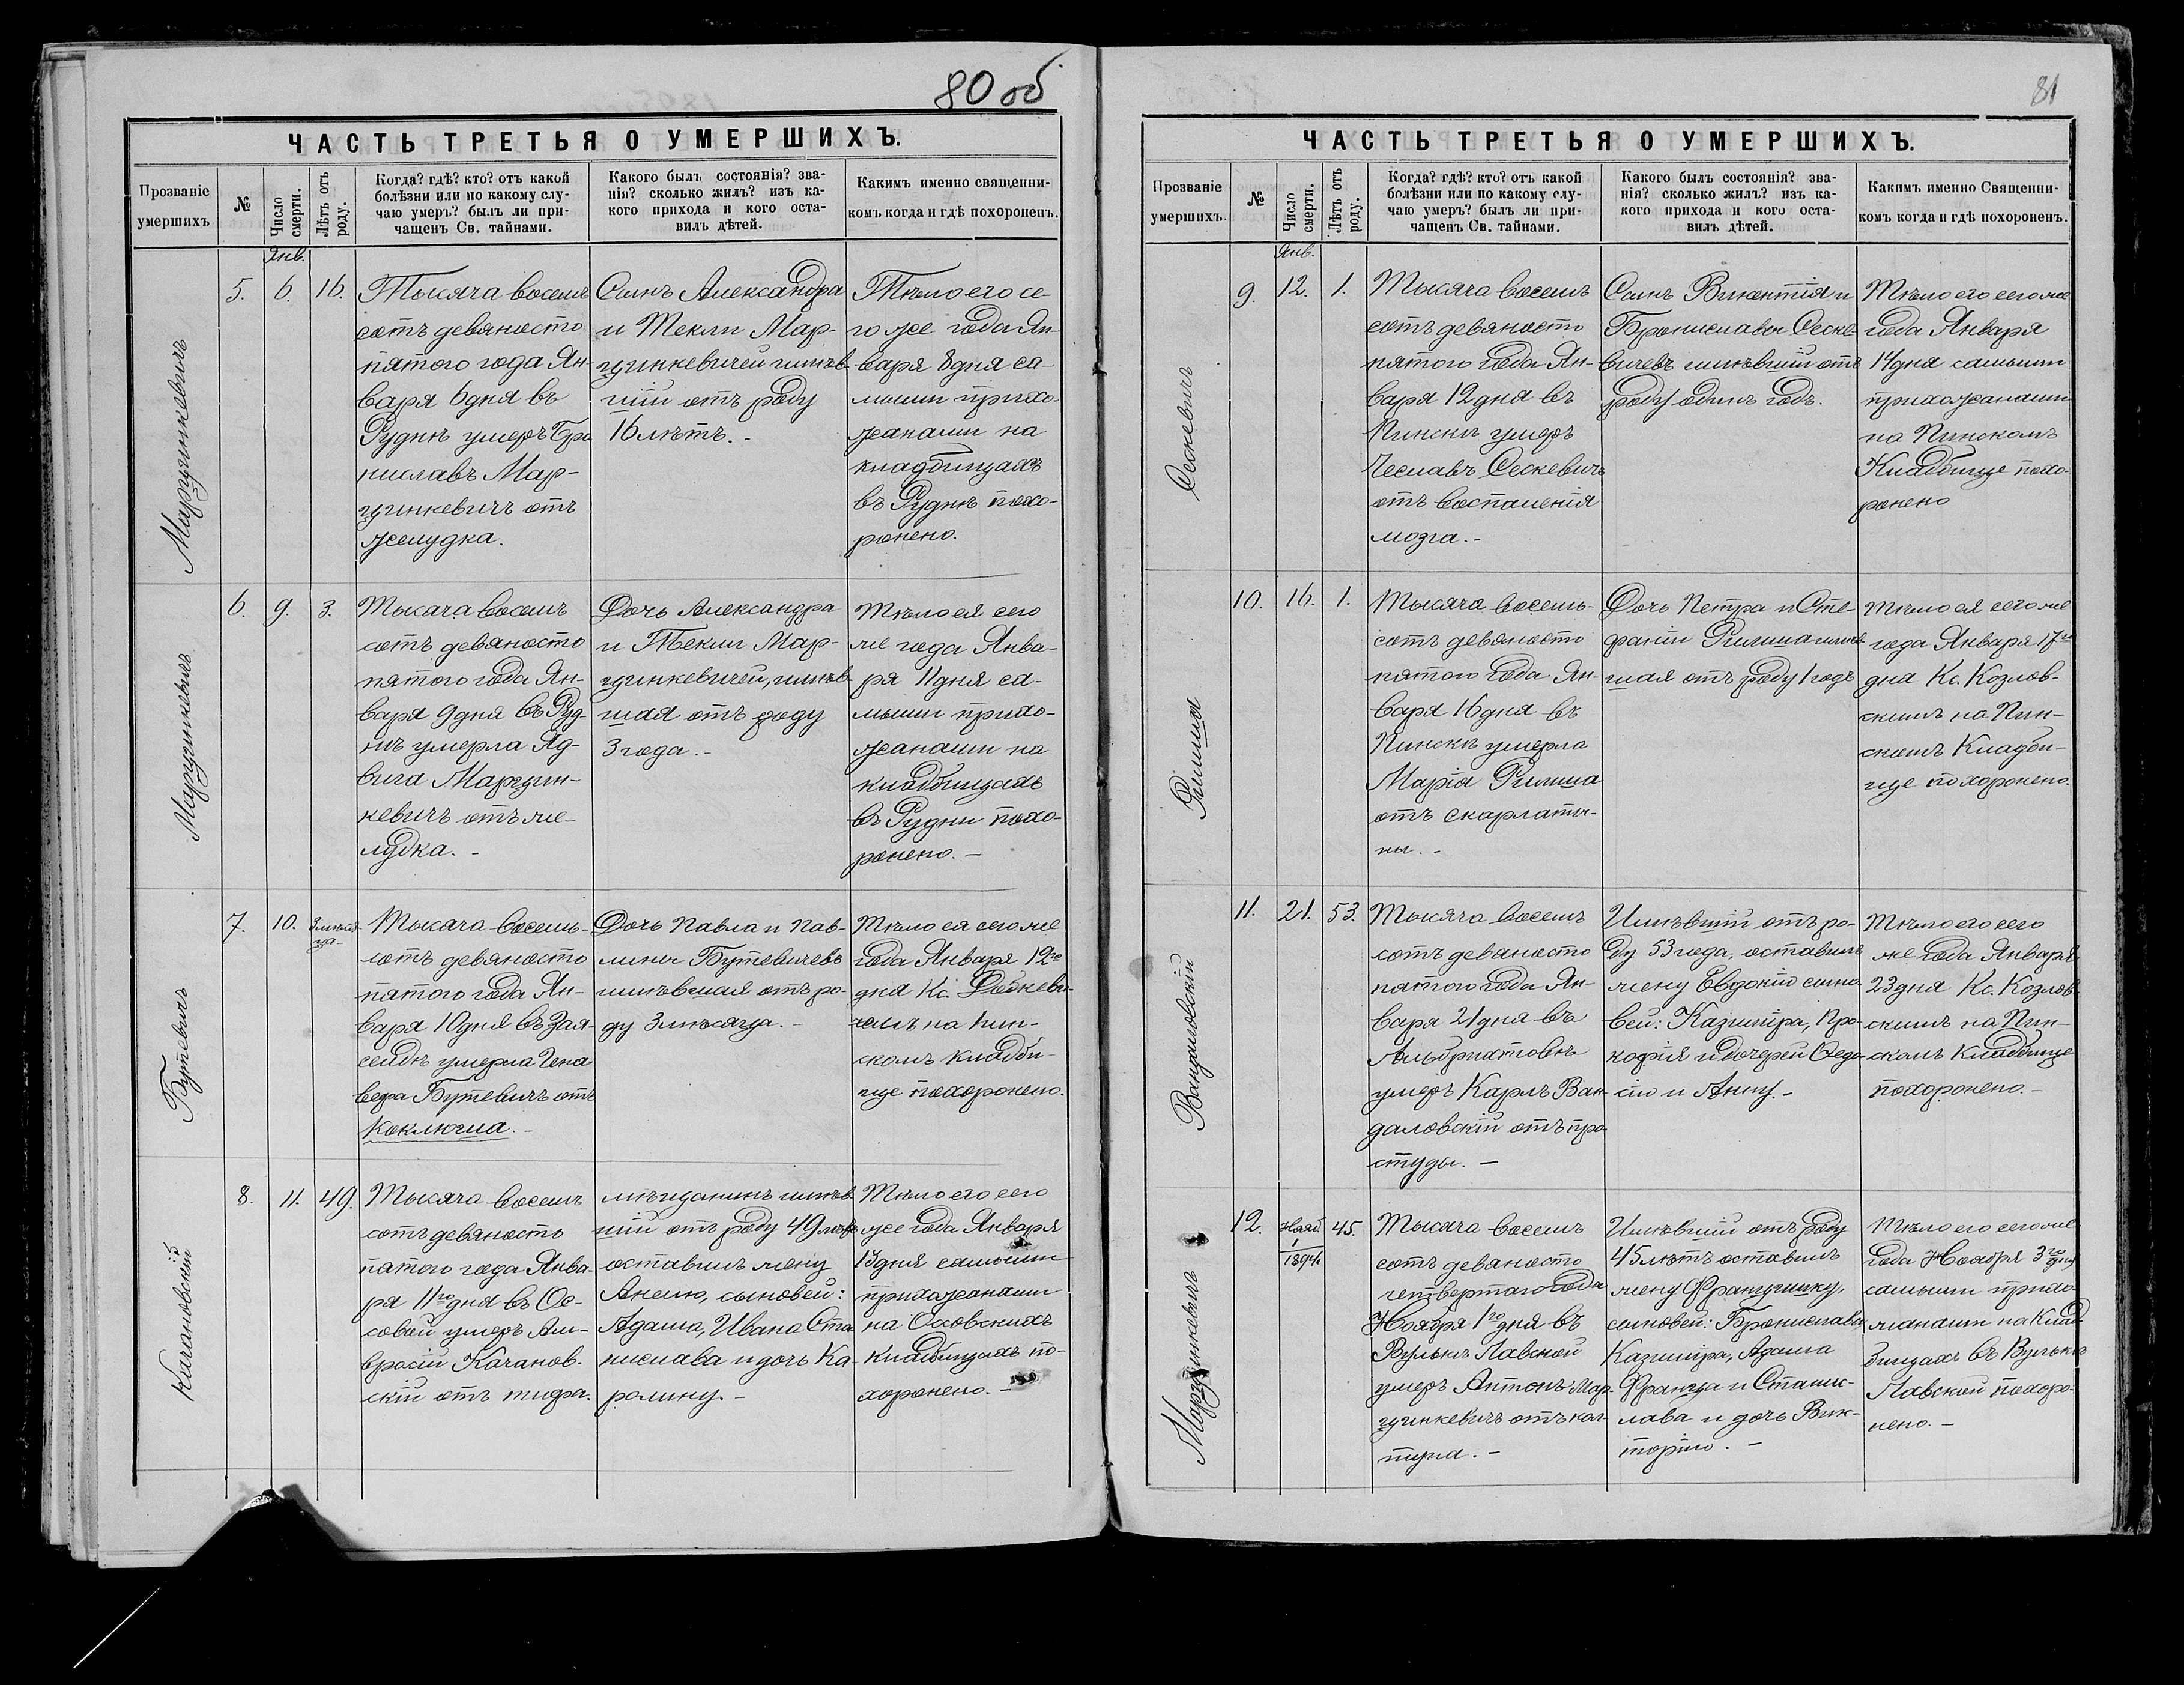 80 об
ЧАСТЬ ТРЕТЬЯ О УМЕРШИХЪ.
Прозваніе
умершихъ
№
Число
смерти.
Лѣтъ отъ
роду.
Когда? гдѣ? кто? отъ какой
болѣзни или по какому слу-
чаю умеръ? былъ ли при-
чащенъ Св. тайнами.
Какого былъ состоянія? зва-
нія? сколько жилъ? изъ ка-
кого прихода и кого оста-
вилъ дѣтей.
Какимъ именно священни-
комъ когда и гдѣ похороненъ.
Янв.
Марцинкевичъ
5.
6.
16.
Тысяча восемь
сотъ девяносто
пятого года Ян-
варя 6 дня въ
Руднѣ умеръ Бро
ниславъ Мар-
цинкевичъ отъ
желудка.
Сынъ Александра
и Текли Мар-
цинкевичей имѣв-
шій отъ роду
16 лѣтъ. -
Тѣло его се-
го же года Ян-
варя 8 дня са-
мыми прихо-
жанами на
кладбищахъ
въ Руднѣ похо-
ронено.
Марцинкевичъ
6.
9.
3.
Тысяча восемь
сотъ девяносто
пятого года Ян-
варя 9 дня въ Руд-
нѣ умерла Яд-
вига Марцин-
кевичъ отъ же-
лудка. -
Дочь Александра
и Текли Мар-
цинкевичей, имѣв-
шая отъ роду
3 года. -
Тѣло ея сего
же года Янва-
ря 11 дня са-
мыми прихо-
жанами на
кладбищахъ
въ Рудни похо-
ронено. -
Бутевичъ
7.
10.
3 мѣся-
ца-
Тысяча восемь-
сотъ девяносто
пятого года Ян-
варя 10 дня въ Зая-
сельдѣ умерла Гено
вефа Бутевичъ отъ
Коклюша. -
Дочь Павла и Пав-
лины Бутевичевъ
имѣвшая отъ ро-
ду 3 мѣсяца. -
Тѣло ея сего же
года Января 12го
дня Кс. Дойкеви-
чемъ на Пин-
скомъ кладби-
ще похоронено.
Качановскій
8.
11.
49.
Тысяча восемь
сотъ девяносто
пятого года Янва-
ря 11го дня въ Ос-
совой умеръ Ам-
вросій Качанов-
скій отъ тифа.
мѣщанинъ имѣв
шій отъ роду 49 лѣтъ
оставилъ жену
Анелю, сыновей:
Адама, Ивана Ста
нислава и дочь Ка-
ролину. -
Тѣло его сего
же года Января
13 дня самыми
прихожанами
на Оссовскихъ
кладбищахъ по-
хоронено. -
81
ЧАСТЬ ТРЕТЬЯ О УМЕРШИХЪ.
Прозваніе
умершихъ.
№
Число
смерти.
Лѣтъ отъ
роду.
Когда? гдѣ? кто? отъ какой
болѣзни или по какому слу-
чаю умеръ? былъ ли при-
чащенъ Св. тайнами.
Какого былъ состоянія? зва-
нія? сколько жилъ? изъ ка-
кого прихода и кого оста-
вилъ дѣтей.
Какимъ именно Священни-
комъ когда и гдѣ похороненъ.
Янв.
Сескевичъ
9.
12.
1.
Тысяча восемь
сотъ девяносто
пятого года Ян-
варя 12 дня въ
Пинскѣ умеръ
Чеславъ Сескевичъ
отъ воспаленія
мозга. -
Сынъ Викентія и
Брониславы Сеске-
вичевъ имѣвшій отъ
роду одинъ годъ.
Тѣло его сего же
года Января
14 дня самыми
прихожанами
на Пинскомъ
Кладбище похо-
ронено
Рилиша
10.
16.
1.
Тысяча восемь-
сотъ девяносто
пятого года Ян-
варя 16 дня въ
Пинскѣ умерла
Марія Рилиша
отъ скарлати-
ны. -
Дочь Петра и Сте-
фаніи Рилиша имѣв-
шая отъ роду 1 годъ
Тѣло ея сего же
года Января 17го
дня Кс. Козлов-
скимъ на Пин-
скомъ Кладби-
ще похоронено.
Вандаловскій
11.
21.
53.
Тысяча восемь
сотъ девяносто
пятого года Ян-
варя 21 дня въ
Альбрихтовѣ
умеръ Карлъ Ван-
даловскій отъ про-
студы. -
Имѣвшій отъ ро-
ду 53 года, оставилъ
жену Евдокію сыно
вей: Казиміра, Про-
кофія и дочерей Федо-
сію и Анну. -
Тѣло его сего
же года Января
23 дня Кс. Козлов-
скимъ на Пин-
скомъ Кладбище
похоронено. -
Марцинкевичъ
12.
Нояб.
1
1894
45.
Тысяча восемь
сотъ девяносто
четвертаго года
Ноября 1го дня въ
Вулькѣ Лавской
умеръ Антонъ Мар-
цинкевичъ отъ кол-
туна. -
Имѣвшій отъ роду
45 лѣтъ оставилъ
жену Францишку,
сыновей: Бронислава,
Казиміра, Адама
Франца и Станис-
лава и дочь Вик-
торію. -
Тѣло его сего же
года Ноября 3го дня
самыми прихо
жанами на Клад-
бищахъ въ Вулькѣ
Лавской похоро-
нено. -